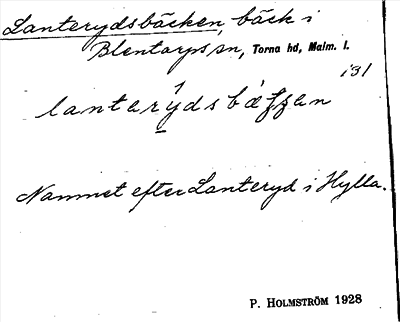 Lanterydsbäcken, bäck i
Blentarps sn, Torna hd, Malm. l.
131
lanterydsbäkken
Namnet efter Lanteryd i Hylla.
P. HOLMSTRÖM 1928